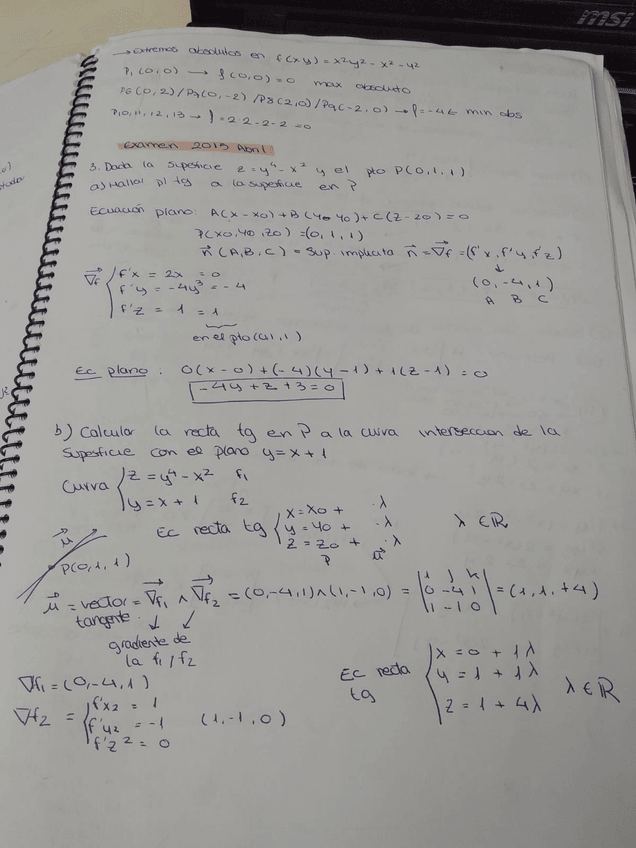 msi
→ Extremos absolutos en f(x,y) = x²y² - x² - y²
P₁(0,0) → f(0,0) = 0 max absoluto
P6(0,2)/P7(0,-2)/P8(2,0)/P9(-2,0) → f = -4 ← min abs
P10,11,12,13 → f = 2·2-2-2 = 0
Examen 2015 Abril
3. Dada la superficie z = y⁴ - x² y el pto P(0,1,1)
a) Hallar pl tg a la superficie en P
Ecuación plano: A(x-x0) + B(y-y0) + C(z-z0) = 0
P(x0,y0,z0) = (0,1,1)
n⃗ (A,B,C) = Sup. implicita n⃗ = ∇⃗f = (f'x, f'y, f'z)
↓
(0,-4,1)
A B C
∇⃗f { f'x = 2x = 0
f'y = -4y³ = -4
f'z = 1 = 1
en el pto (0,1,1)
Ec plano: 0(x-0) + (-4)(y-1) + 1(z-1) = 0
-4y + z + 3 = 0
b) Calcular la recta tg en P a la curva interseccion de la
superficie con el plano y = x + 1
Curva { z = y⁴ - x² f1
y = x + 1 f2
Ec recta tg { x = x0 + ·λ
y = y0 + ·λ
z = z0 + ·λ
λ ∈ ℝ
P u⃗
u⃗
P(0,1,1)
u⃗ = vector = ∇⃗f1 ∧ ∇⃗f2 = (0,-4,1)∧(1,-1,0) = | i j k | = (1,1,+4)
| 0 -4 1 |
| 1 -1 0 |
tangente ↓ ↙
gradiente de
la f1 / f2
∇f1 = (0,-4,1)
∇f2 = { f'x2 = 1
f'y2 = -1
f'z2 = 0
(1,-1,0)
Ec recta
tg
{ x = 0 + 1λ
y = 1 + 1λ
z = 1 + 4λ
λ ∈ ℝ